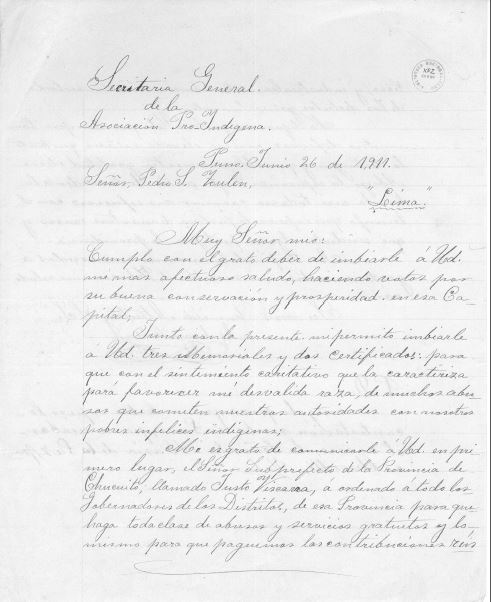 Secritaria General.
de la
Asociación Pro-Indigena.
Puno, Junio 26 de 1,911.
Señor, Pedro S. Zulen,
"Lima."
Muy Señor mio:
Cumplo con el grato deber de imbiarle á Ud.
mi mas afectuoso saludo, haciendo votos por
su buena conservación y prosperidad en esa Ca-
pital;
Junto con la presente mi permito imbiarle
a Ud. tres Memoriales y dos certificados: para
que con el sintimiento caritativo que la caracteriza
pará favorecer mi desvalida raza, de muchos abu-
sos que cometen nuestras autoridades con nosotros
pobres infelices indiginas;
Me es grato de comunicarle á Ud. en pri-
mero lugar, el Señor Sub prefecto di la Provincia de
Chucuito, llamado Justo Viscarra, á ordenado á todo los
Gobernadores de los Distritos, de esa Provincia para que
haga toda clase de abusos y servicios gratuitos y lo-
mismo para que paguemos las contribuciones